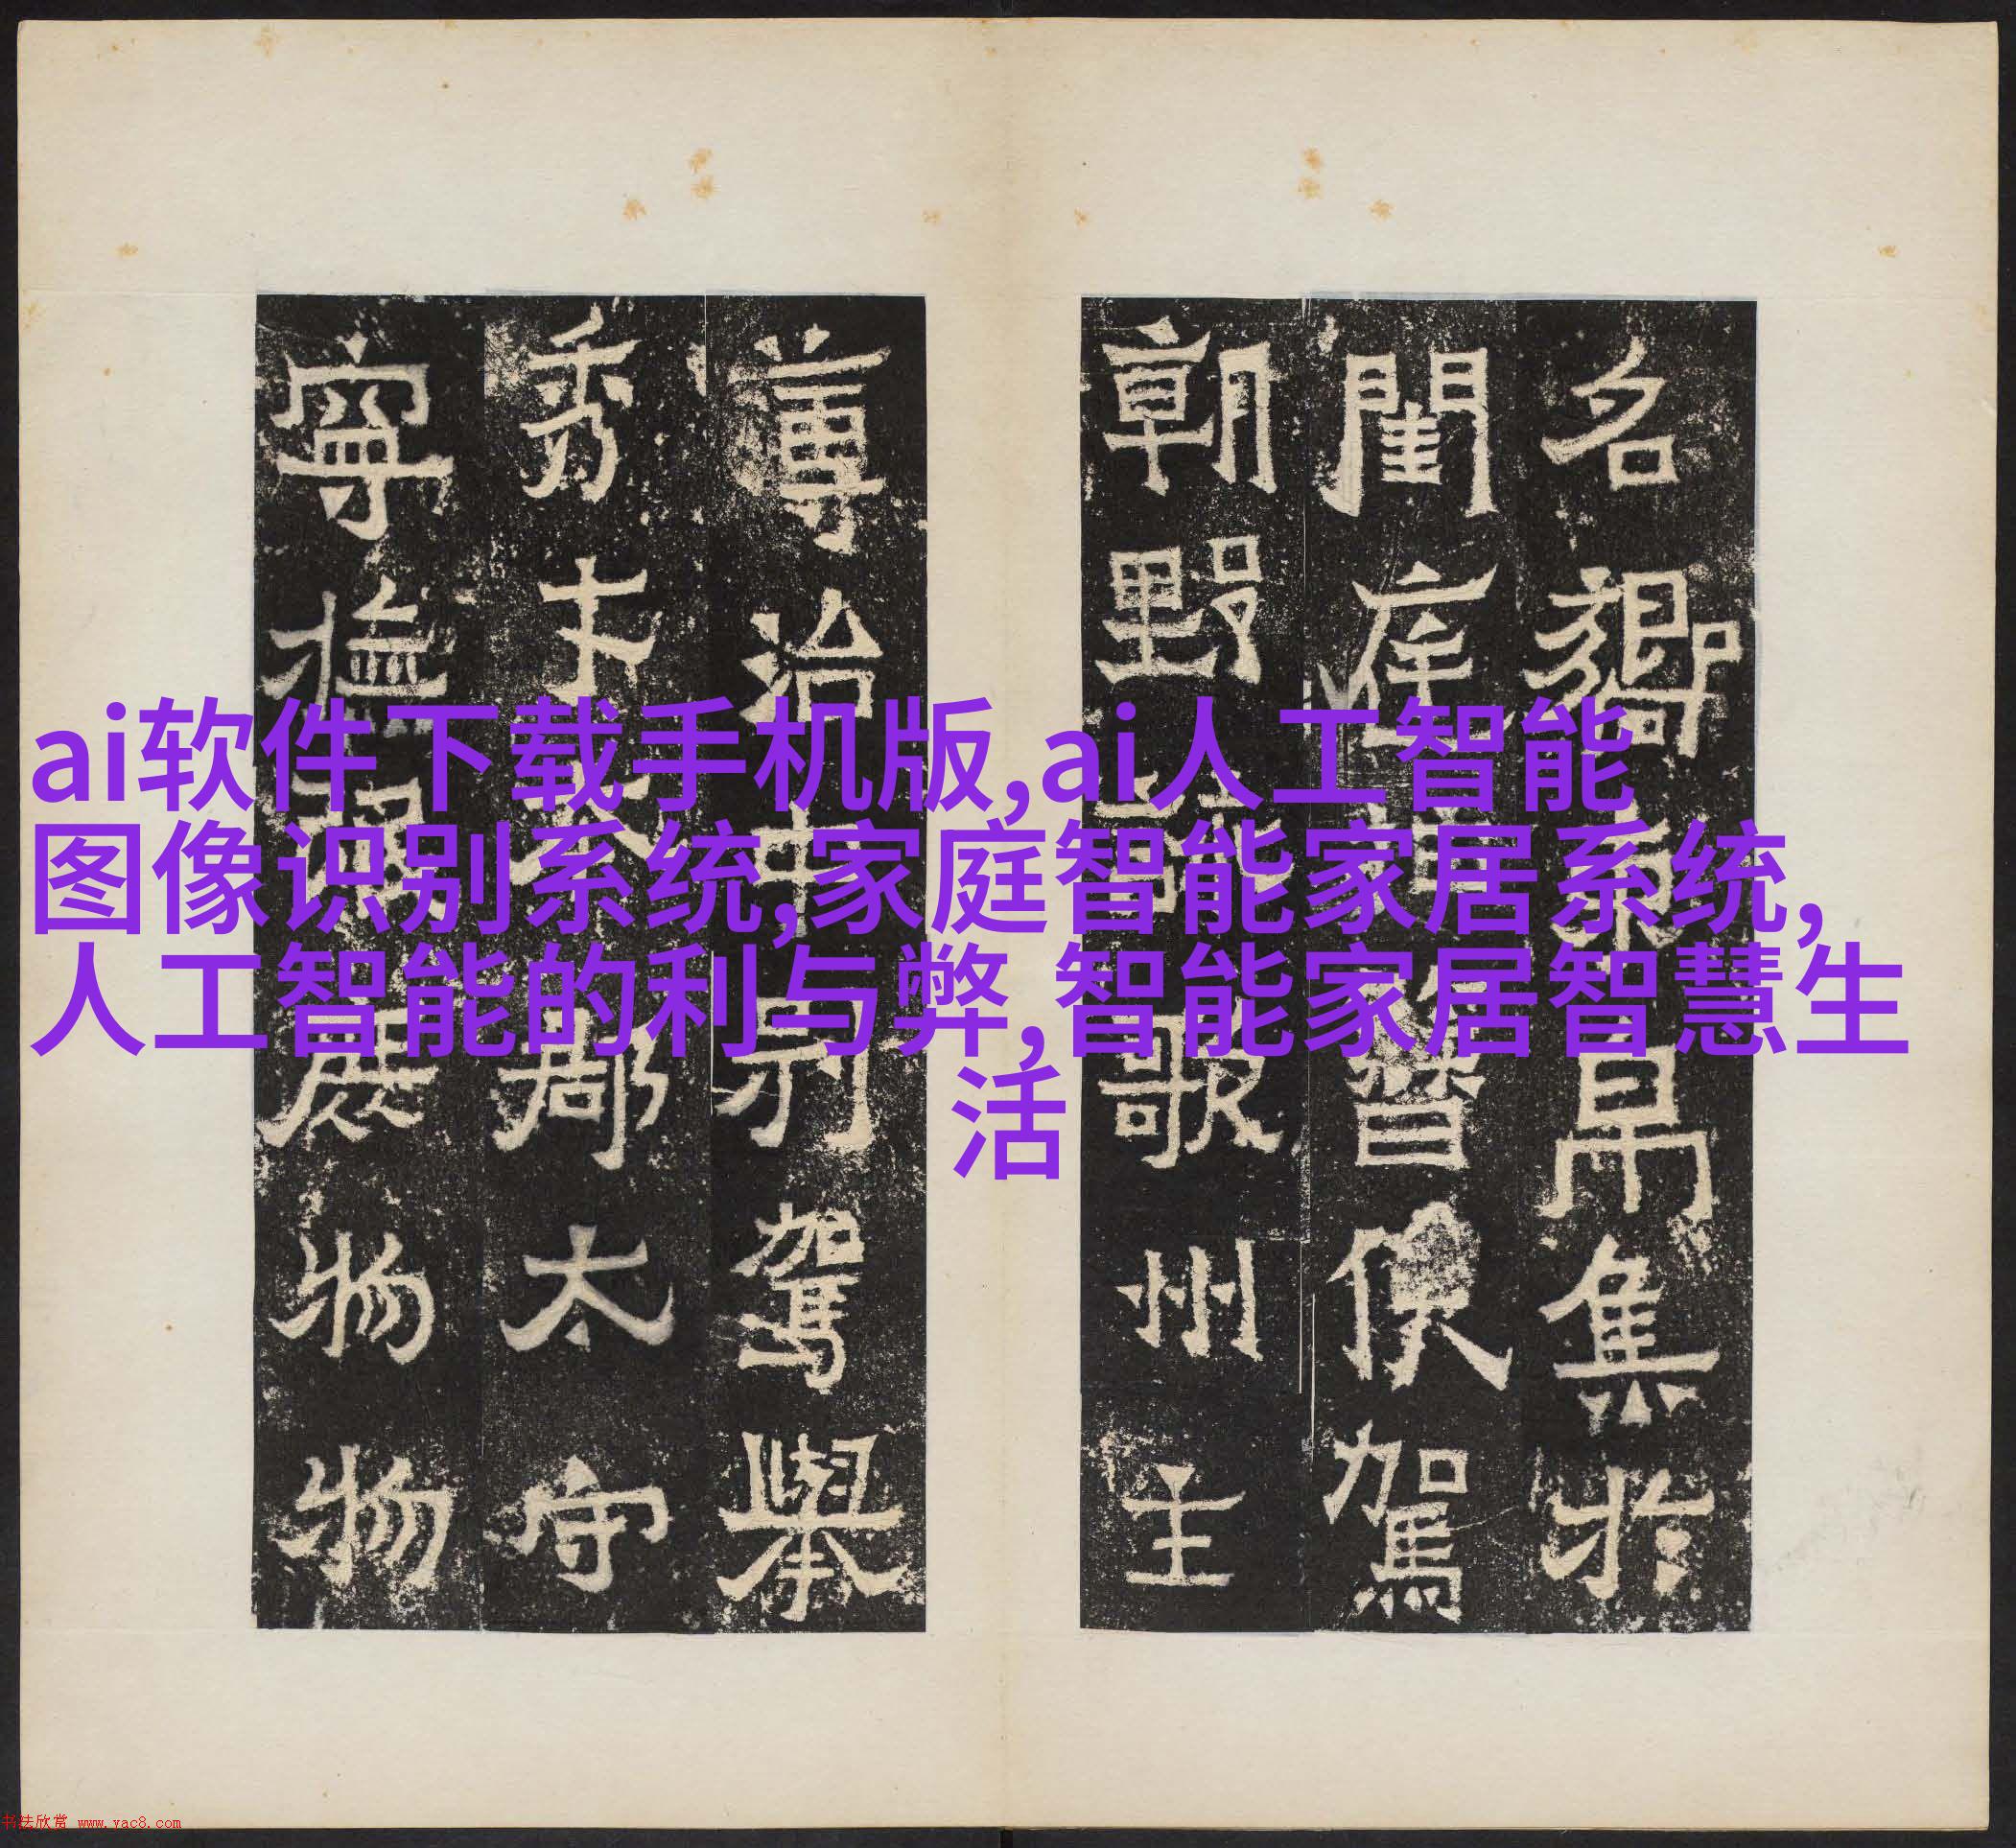 ai软件下载手机版,ai人工智能
图像识别系统,家庭智能家居系统,
人工智能的利与弊,智能家居智慧生
活
名嚮束帛集於
閨庭抽簪俟駕
朝野詠歌州主
簿治中別駕舉
秀才本郡太守
寧撫氓庶物物
书法欣赏 www.yac8.com